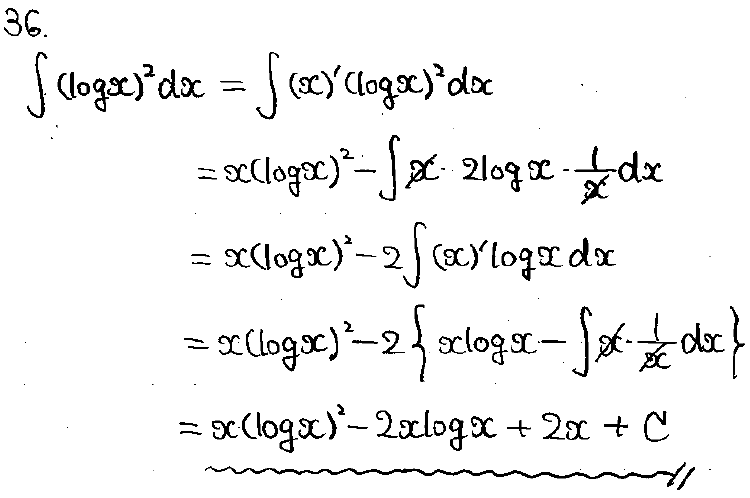 36.
∫(logx)²dx = ∫(x)'(logx)²dx
= x(logx)² - ∫x · 2logx · 1/x dx
= x(logx)² - 2∫(x)'logx dx
= x(logx)² - 2{xlogx - ∫x · 1/x dx}
= x(logx)² - 2xlogx + 2x + C